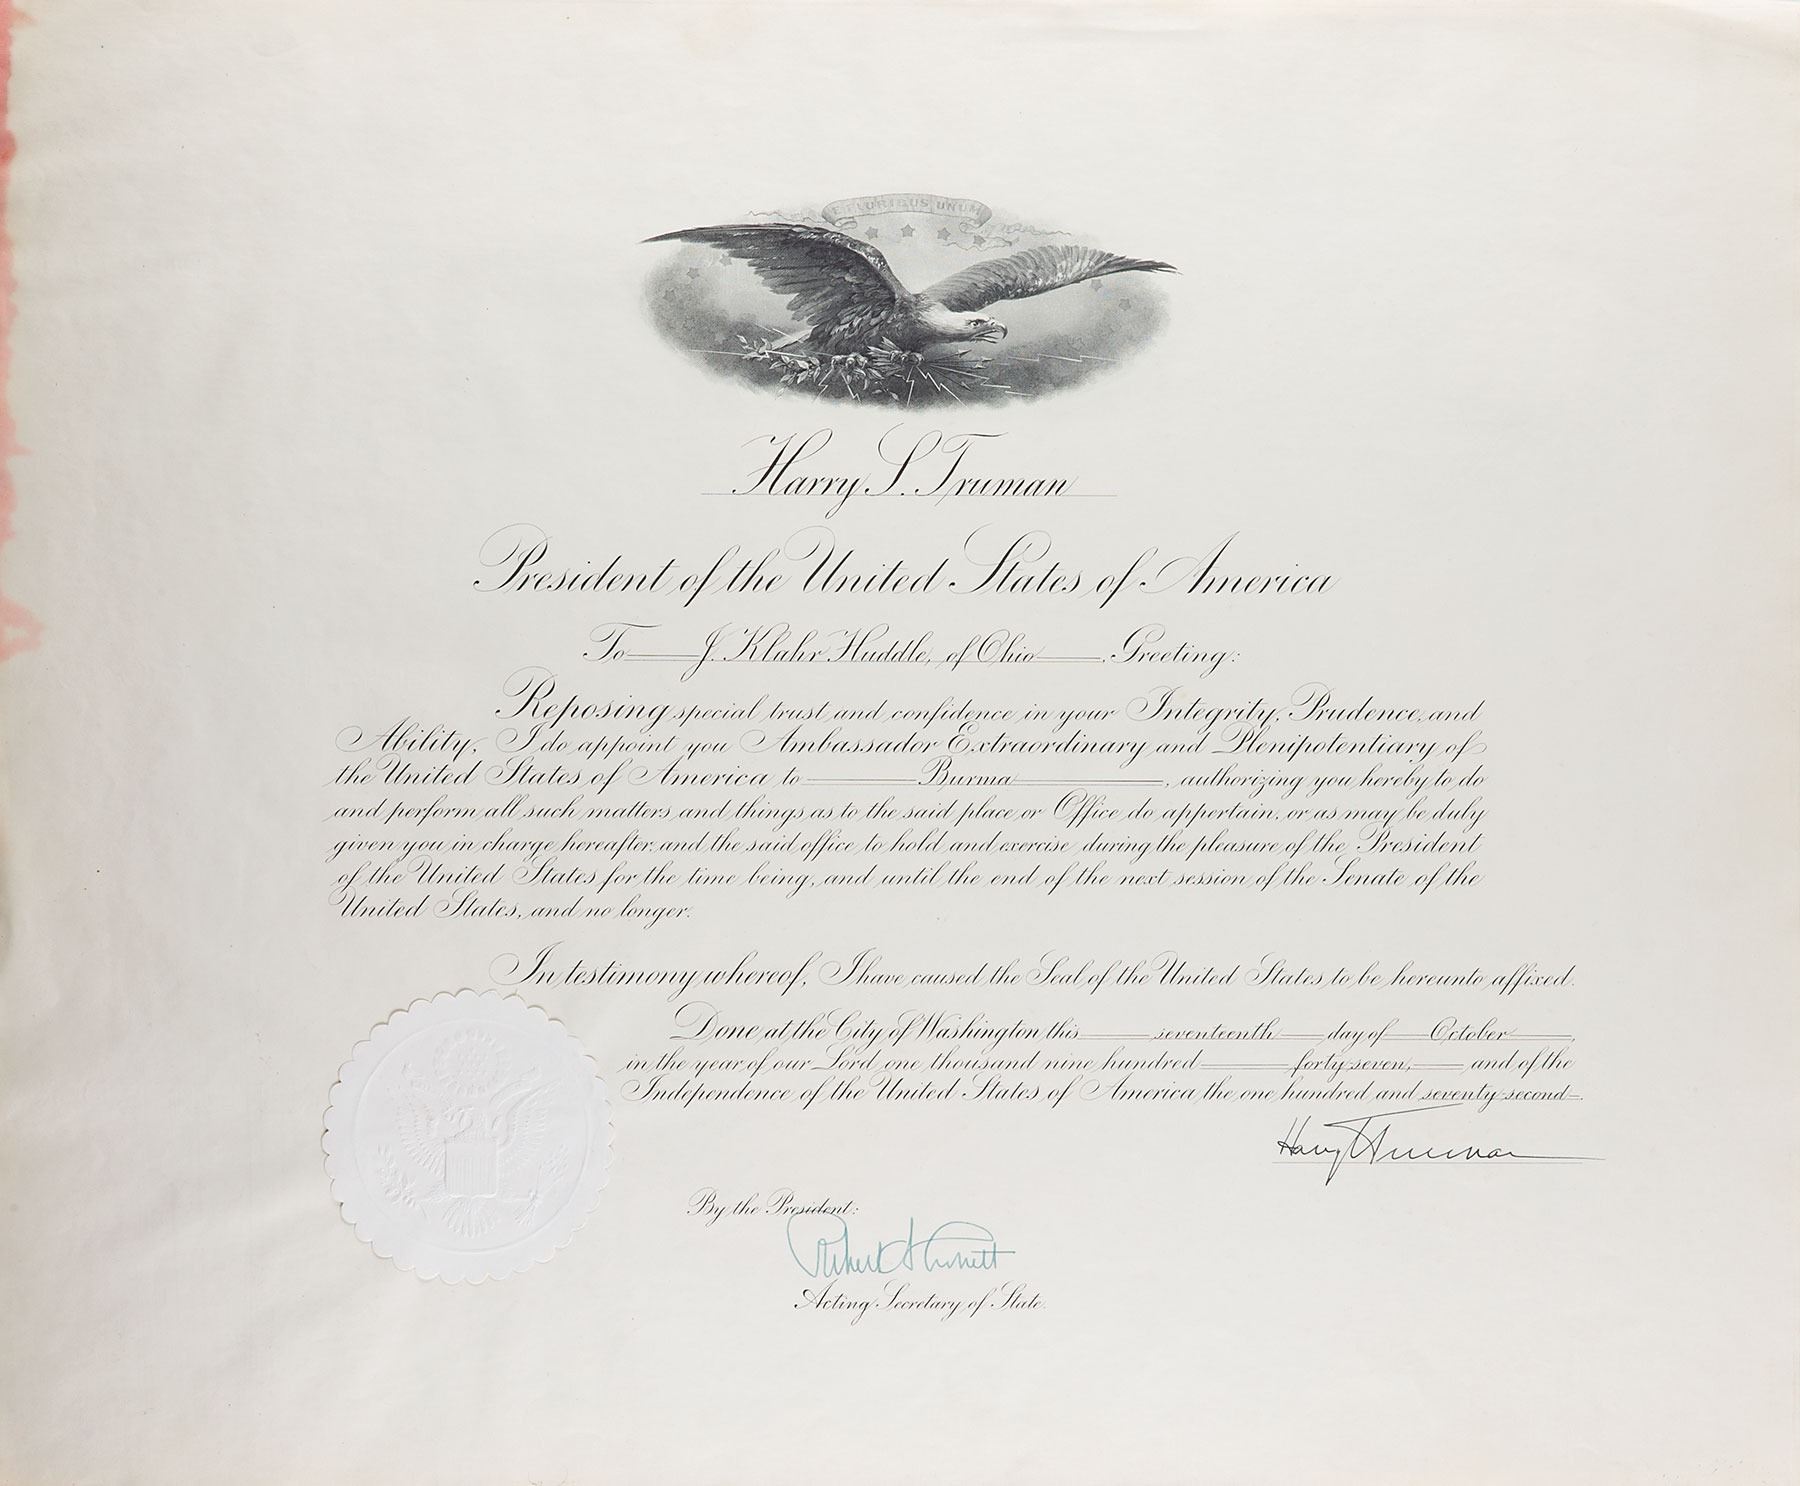 E PLURIBUS UNUM
Harry S. Truman
President of the United States of America
To J. Klahr Huddle, of Ohio, Greeting:
Reposing special trust and confidence in your Integrity, Prudence, and
Ability, I do appoint you Ambassador Extraordinary and Plenipotentiary of
the United States of America to Burma, authorizing you hereby to do
and perform all such matters and things as to the said place or Office do appertain, or as may be duly
given you in charge hereafter, and the said office to hold and exercise during the pleasure of the President
of the United States for the time being, and until the end of the next session of the Senate of the
United States, and no longer.
In testimony whereof, I have caused the Seal of the United States to be hereunto affixed.
Done at the City of Washington this seventeenth day of October,
in the year of our Lord one thousand nine hundred forty-seven, and of the
Independence of the United States of America the one hundred and seventy-second.
Harry Truman
By the President:
Robert A Lovett
Acting Secretary of State.